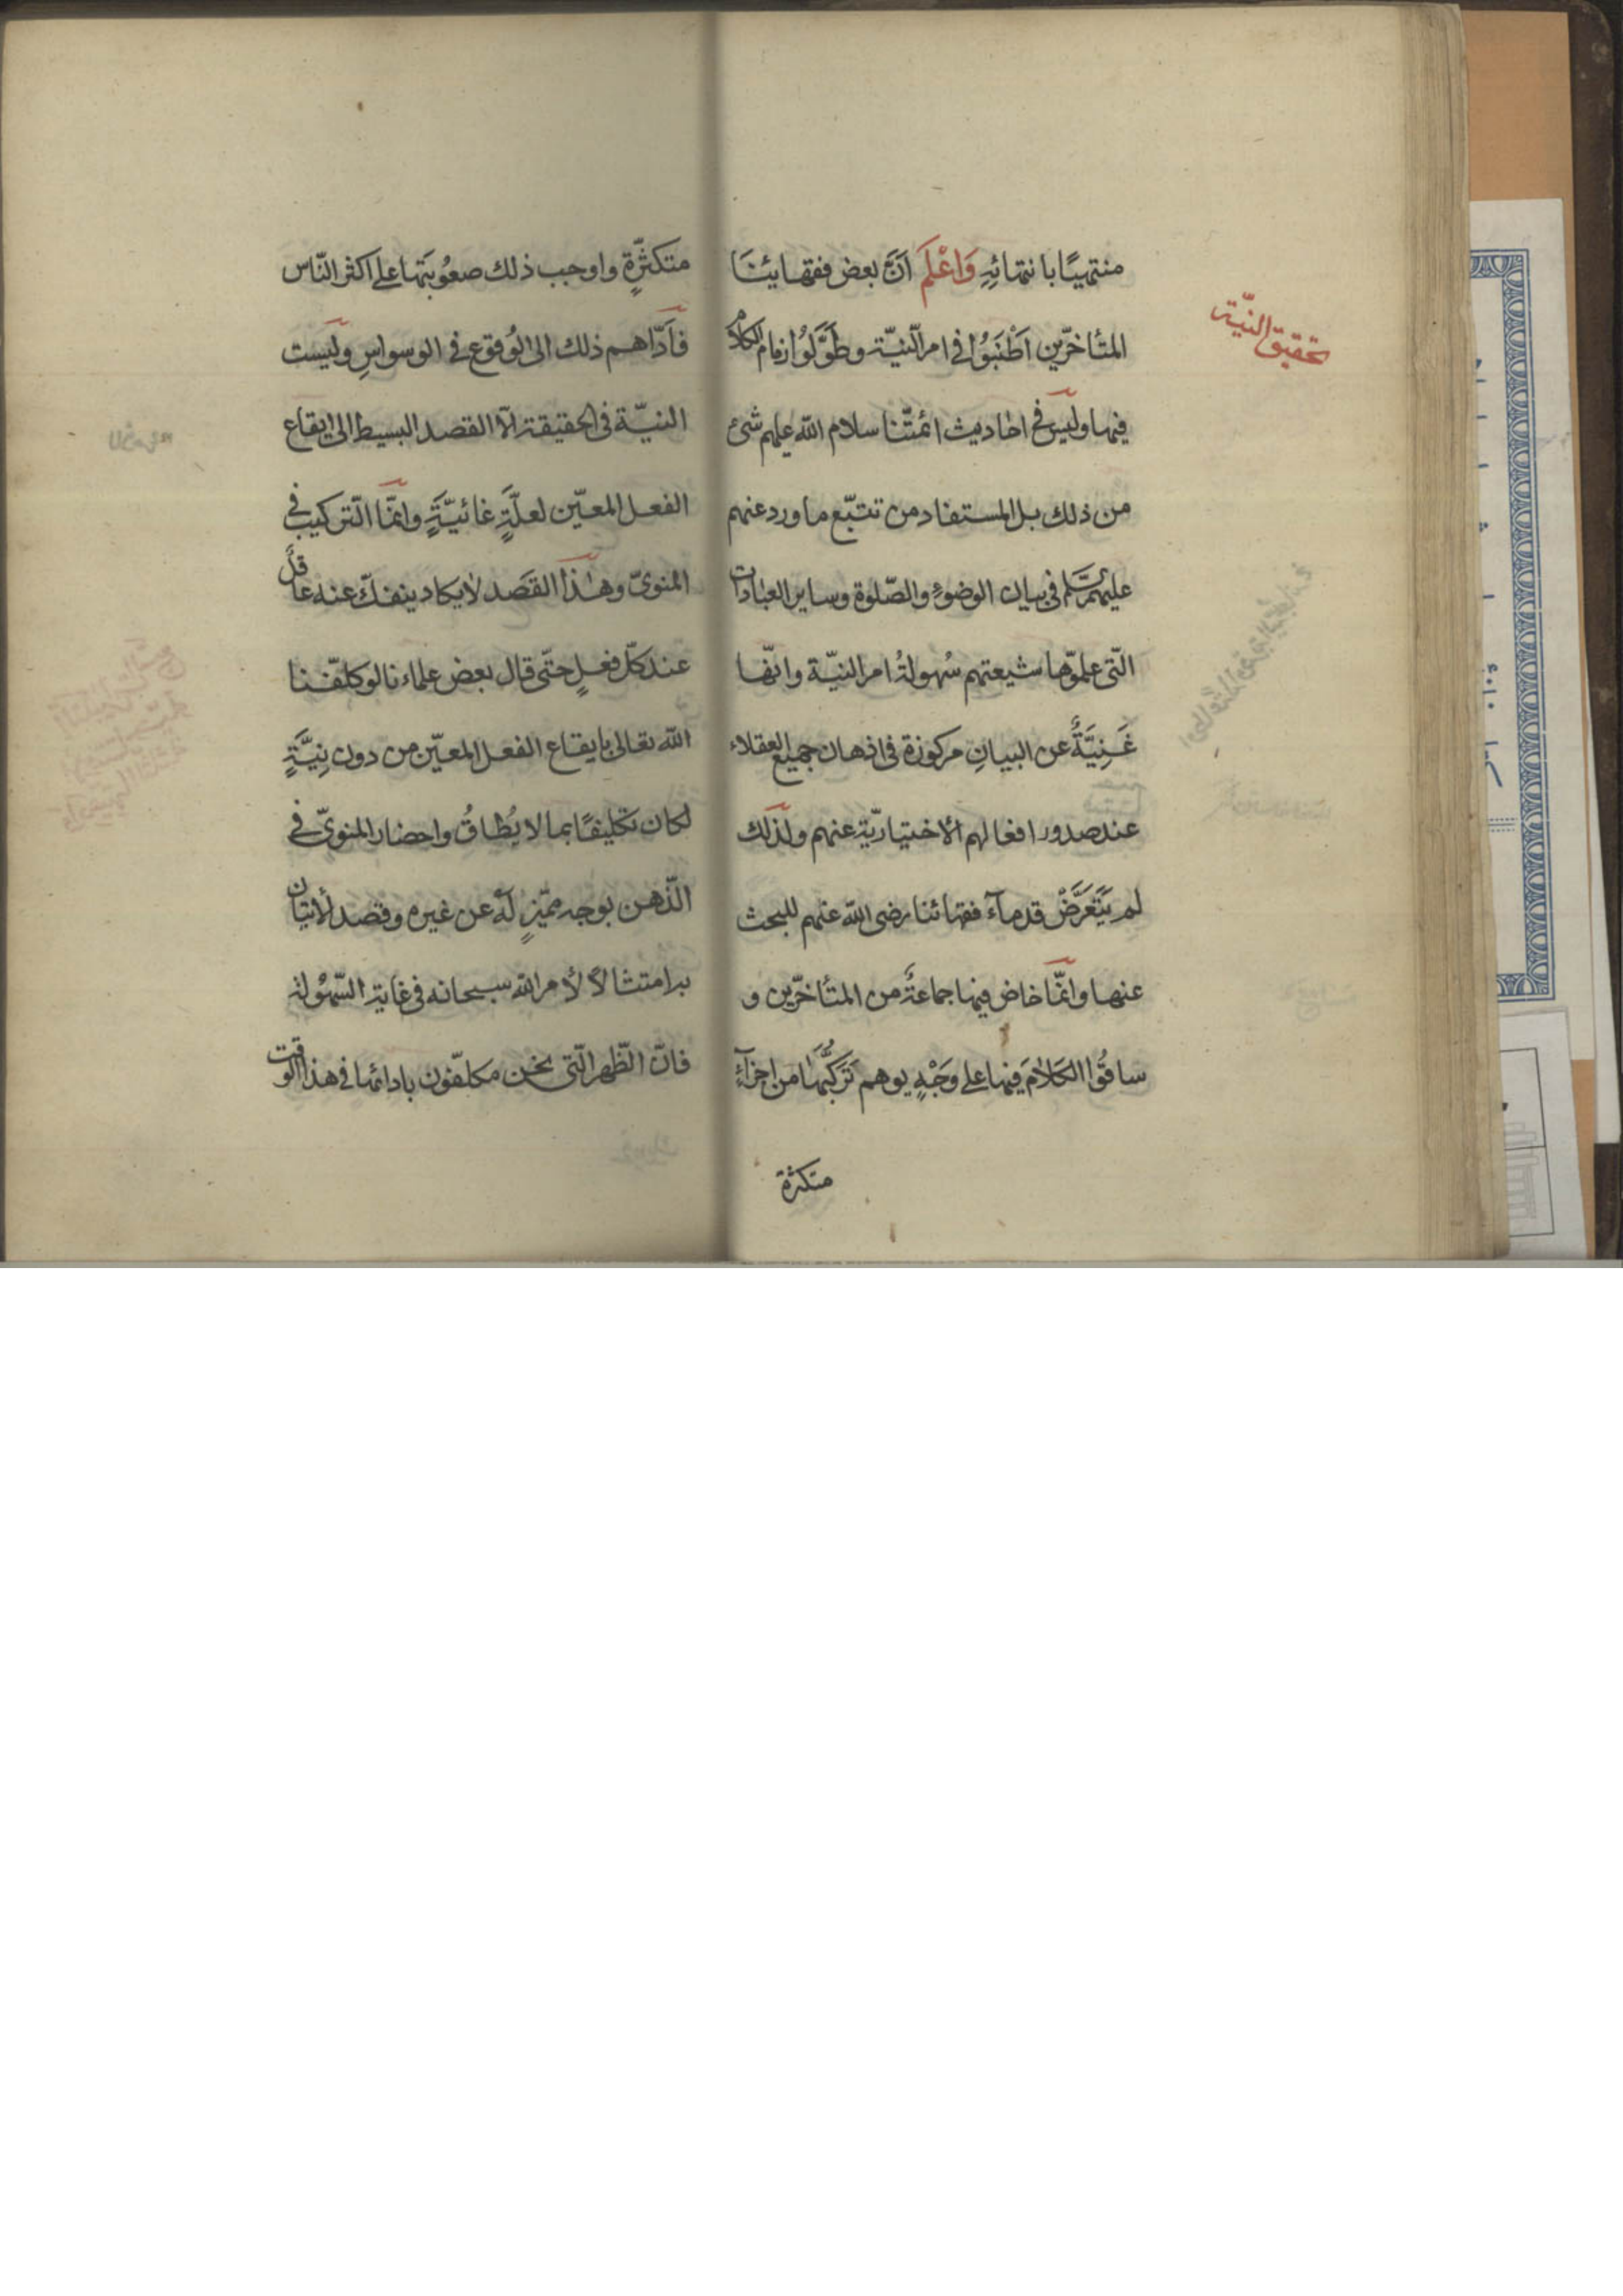 تحقيق النيّة
منتهيًا بانتهائِهِ وَاعْلَم اَنَّ بعض فقهائنَا
المتأخرّين اَطْنَبُوا في امر النيّة وطَوَّلَوُا زمام الكلام
فيها وليس في احاديث ائمتّنا سلام اللّه عليهم شئ
من ذلك بل المستفاد من تتبّع ما ورد عنهم
عليهم السّلم في بيان الوضوءِ والصّلوة وساير العبادات
الّتى علموّها شيعتهم سُهولةُ امر النيّة وانّها
غَنِيَّةٌ عن البيانِ مركوزة في اذهان جميع العقلاء
عند صدور افعالهم الاختياريّة عنهم ولذلك
لم يَتَعَرَّضْ قدمآء فقهائنا رضى اللّه عنهم للبحث
عنها وانمّا خاض فيها جماعةٌ من المتأخرّين و
ساقُوا الكَلامَ فيها على وَجْهٍ يوهم تَرَكُّبَهَا من اجزآءٍ
متكثرة
متكثّرةٍ واوجب ذلك صعُوبَتها على اكثر النّاس
فأَدّاهم ذلك الى الوُقوع في الوسواسِ وليست
النيّة في الحقيقة الّا القصد البسيط الى ايقاع
الفعل المعيّن لعلّةٍ غائيّةٍ وانمّا الترّكيب في
المنوىّ وهذا القَصد لا يكاد ينفكّ عنه عاقل
عند كلّ فعلٍ حتّى قال بعض علماءنا لو كلفّنا
اللّه تعالى بايقاع الفعل المعيّن من دون نِيَّةٍ
لكان تكليفًا بما لا يُطاقُ واحضار المنوىّ في
الذّهن بوجه مميّزٍ له عن غيره وقصد الأتيان
به امتثالًا لأمر اللّه سبحانه في غاية السّهُولة
فانّ الظّهر الّتى نحن مكلفّون بادائها في هذا الوقت